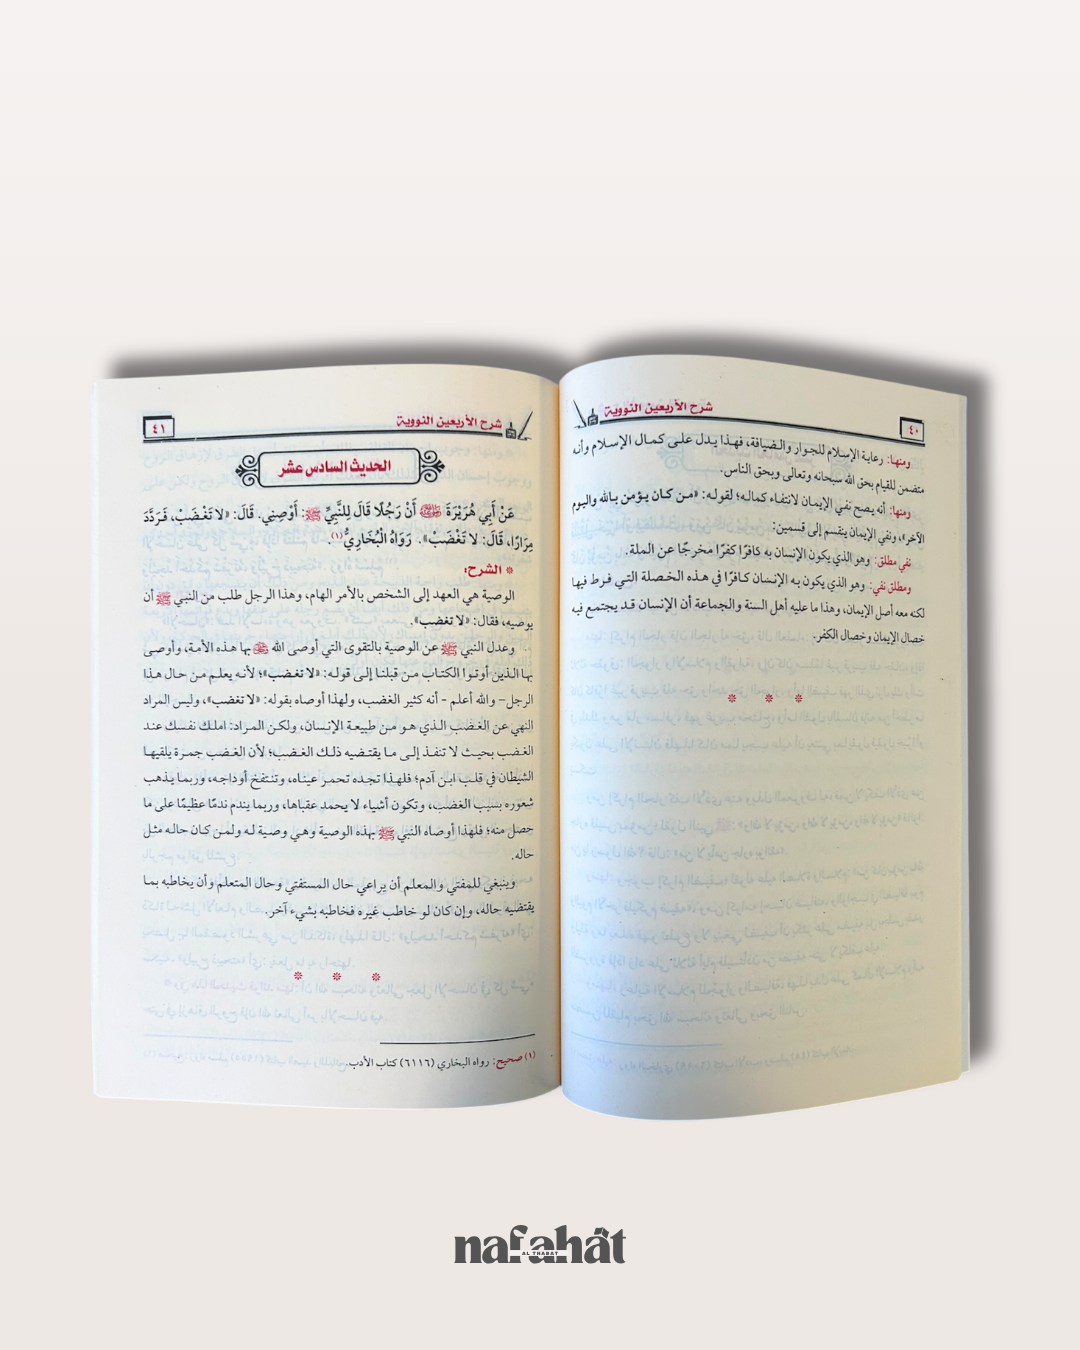 شرح الأربعين النووية
٤٠
ومنها: رعاية الإسلام للجوار والضيافة، فهذا يدل على كمال الإسلام وأنه
متضمن للقيام بحق الله سبحانه وتعالى وبحق الناس.
ومنها: أنه يصح نفي الإيمان لانتفاء كماله؛ لقوله: «من كان يؤمن بالله واليوم
الآخر»، ونفي الإيمان ينقسم إلى قسمين:
نفي مطلق: وهو الذي يكون الإنسان به كافرًا كفرًا مخرجًا عن الملة.
ومطلق نفي: وهو الذي يكون به الإنسان كافرًا في هذه الخصلة التي فرط فيها
لكنه معه أصل الإيمان، وهذا ما عليه أهل السنة والجماعة أن الإنسان قد يجتمع فيه
خصال الإيمان وخصال الكفر.
شرح الأربعين النووية
٤١
الحديث السادس عشر
عَنْ أَبِي هُرَيْرَةَ ﵁ أَنَّ رَجُلًا قَالَ لِلنَّبِيِّ ﷺ: أَوْصِنِي. قَالَ: «لا تَغْضَبْ، فَرَدَّدَ
مِرَارًا، قَالَ: لا تَغْضَبْ». رَوَاهُ الْبُخَارِيُّ(١).
* الشرح:
الوصية هي العهد إلى الشخص بالأمر الهام، وهذا الرجل طلب من النبي ﷺ أن
يوصيه، فقال: «لا تغضب».
وعدل النبي ﷺ عن الوصية بالتقوى التي أوصى الله ﷻ بها هذه الأمة، وأوصى
بها الذين أوتوا الكتاب من قبلنا إلى قوله: «لا تغضب»؛ لأنه يعلم من حال هذا
الرجل- والله أعلم - أنه كثير الغضب، ولهذا أوصاه بقوله: «لا تغضب»، وليس المراد
النهي عن الغضب الذي هو من طبيعة الإنسان، ولكن المراد: املك نفسك عند
الغضب بحيث لا تنفذ إلى ما يقتضيه ذلك الغضب؛ لأن الغضب جمرة يلقيها
الشيطان في قلب ابن آدم؛ فلهذا تجده تحمر عيناه، وتنتفخ أوداجه، وربما يذهب
شعوره بسبب الغضب، وتكون أشياء لا يحمد عقباها، وربما يندم ندمًا عظيمًا على ما
حصل منه؛ فلهذا أوصاه النبي ﷺ بهذه الوصية وهي وصية له ولمن كان حاله مثل
حاله.
وينبغي للمفتي والمعلم أن يراعي حال المستفتي وحال المتعلم وأن يخاطبه بما
يقتضيه حاله، وإن كان لو خاطب غيره فخاطبه بشيء آخر.
(١) صحيح: رواه البخاري (٦١١٦) كتاب الأدب.
nafahât
AL THABAT